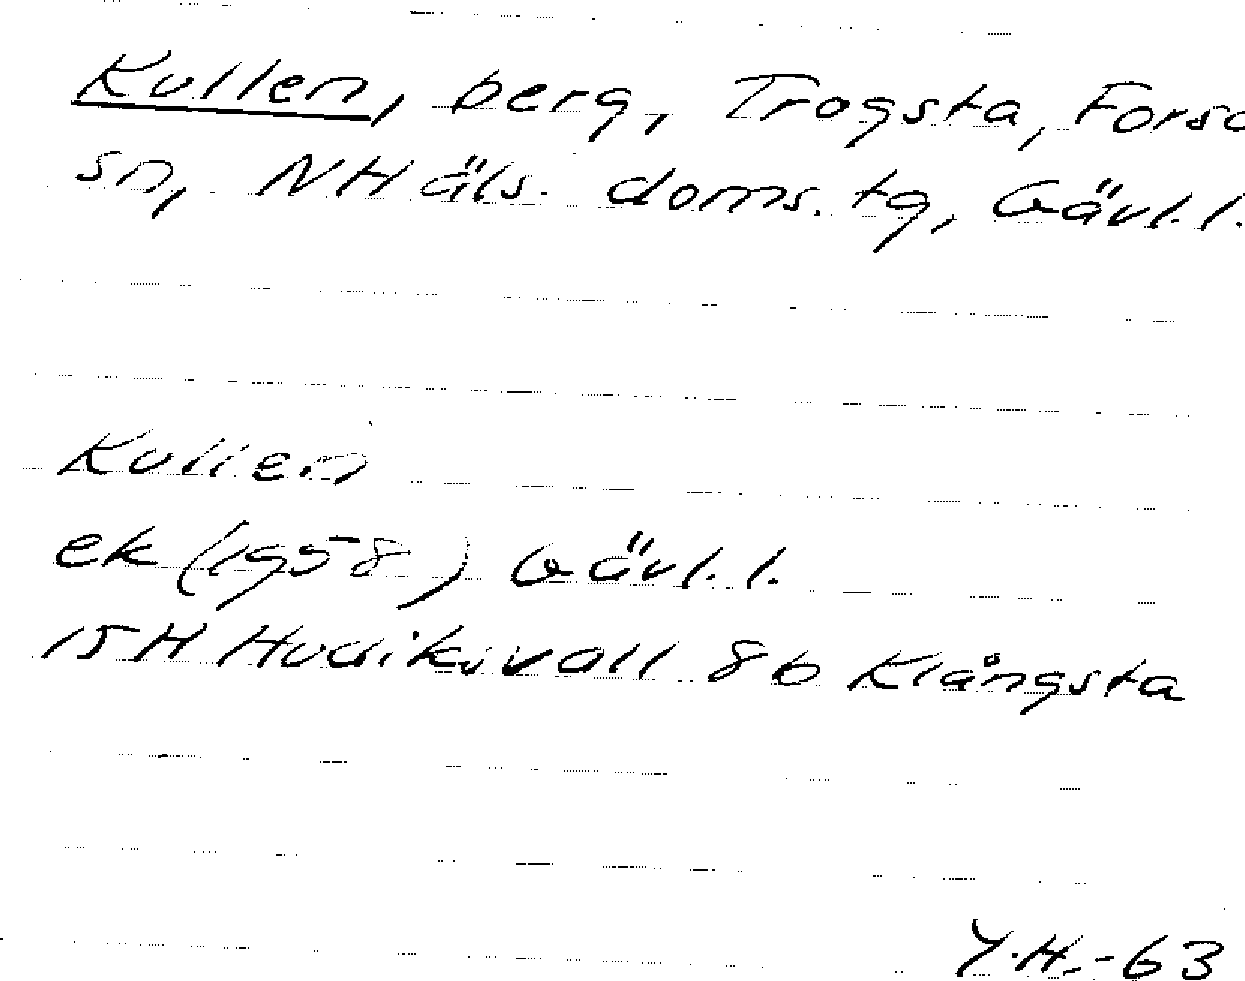 Kullen, berg, Trogsta, Forsa
sn, NHäls. doms. tg, Gävl. l.
Kullen
ek (1958) Gävl. l.
15H Hudiksvall 8b Klångsta
Y.H.-63